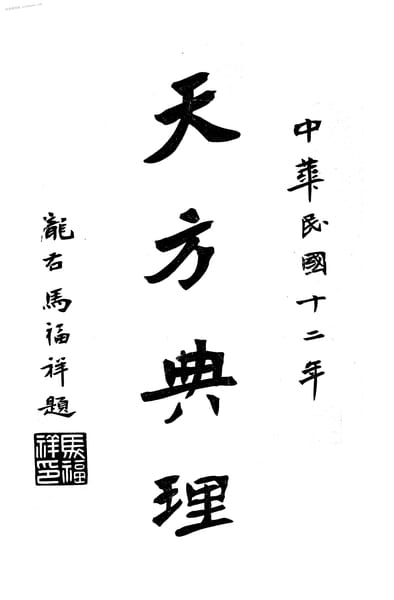 中華民國十二年
天方典理
隴右馬福祥題
馬福祥印